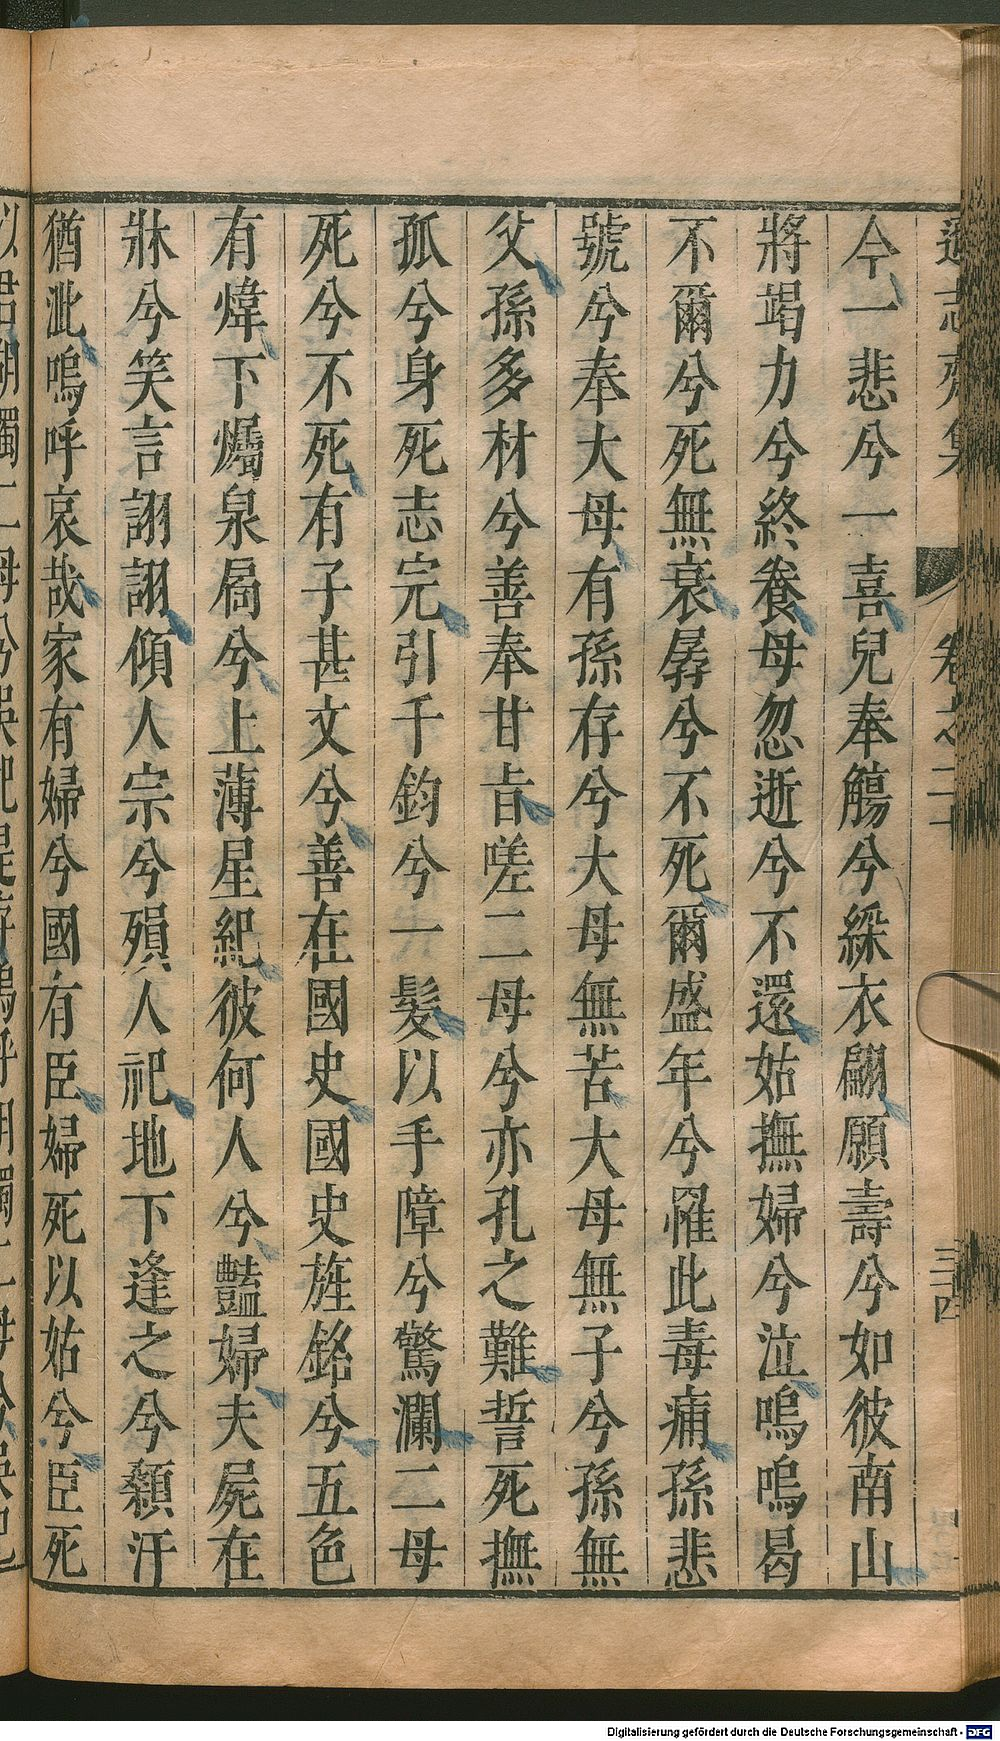 遜志齋集 卷之二十 三十四
今一悲兮一喜兒奉觴兮綵衣翩願壽兮如彼南山
將竭力兮終養母忽逝兮不還姑撫婦兮泣嗚嗚曷
不爾兮死無衰孱兮不死爾盛年兮罹此毒痡孫悲
號兮奉大母有孫存兮大母無苦大母無子兮孫無
父孫多材兮善奉甘旨嗟二母兮亦孔之難誓死撫
孤兮身死志完引千鈞兮一髮以手障兮驚瀾二母
死兮不死有子甚文兮善在國史國史旌銘兮五色
有煒下燭泉扃兮上薄星紀彼何人兮豔婦夫屍在
牀兮笑言詡詡傾人宗兮殞人祀地下逢之兮顙汗
猶泚嗚呼哀哉家有婦兮國有臣婦死以姑兮臣死
Digitalisierung gefördert durch die Deutsche Forschungsgemeinschaft - DFG